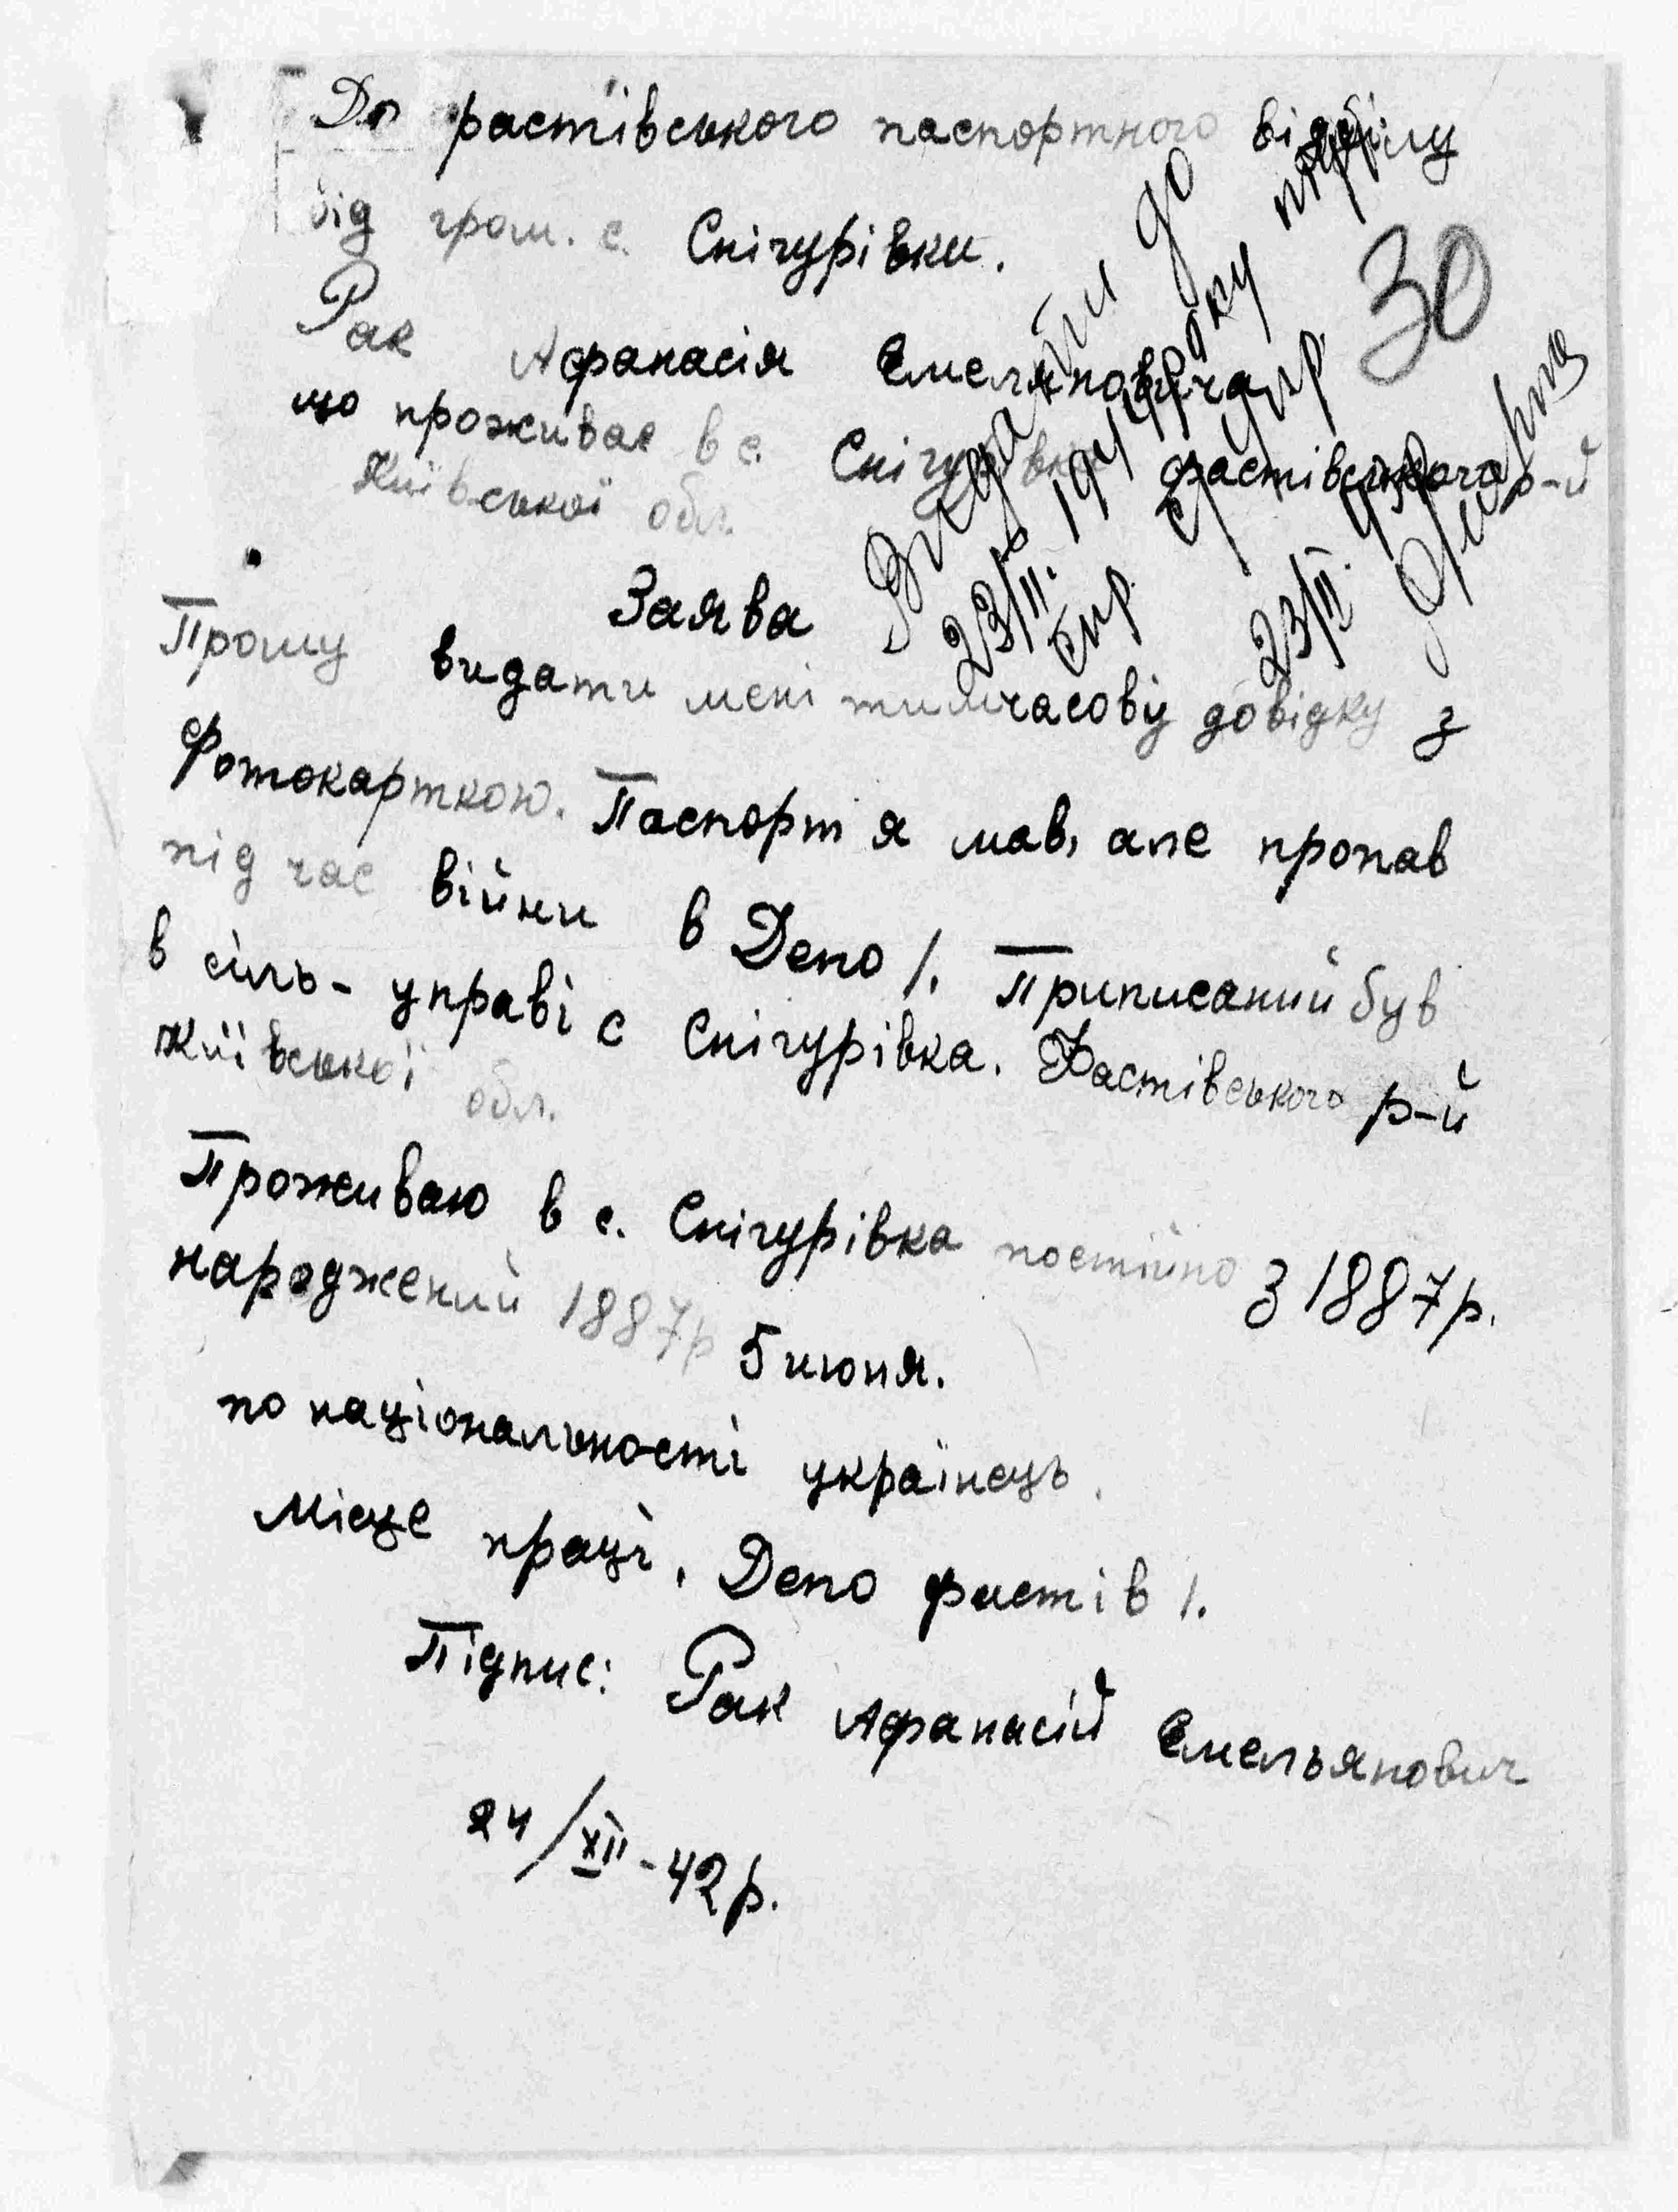 До фастівського паспортного відділу
від гром. с. Снігурівки.
Рак Афанасія Емеляновича
що проживає в с. Снігурівка фастівського р-й
Київської обл.
30
Видати до
23/II. 194
23/II. 43р.
Заява
Прошу видати мені тимчасову довідку з
Фотокарткою. Паспорт я мав, але пропав
під час війни в Депо 1. Приписаний був
в сіль-управі с Снігурівка. Фастівського р-й
Київської обл.
Проживаю в с. Снігурівка постійно з 1887р.
народжений 1887р 5 июня.
по національності українець.
Місце праці, Депо фастів 1.
Підпис: Рак Афанасій Емельянович
24/XII-42р.